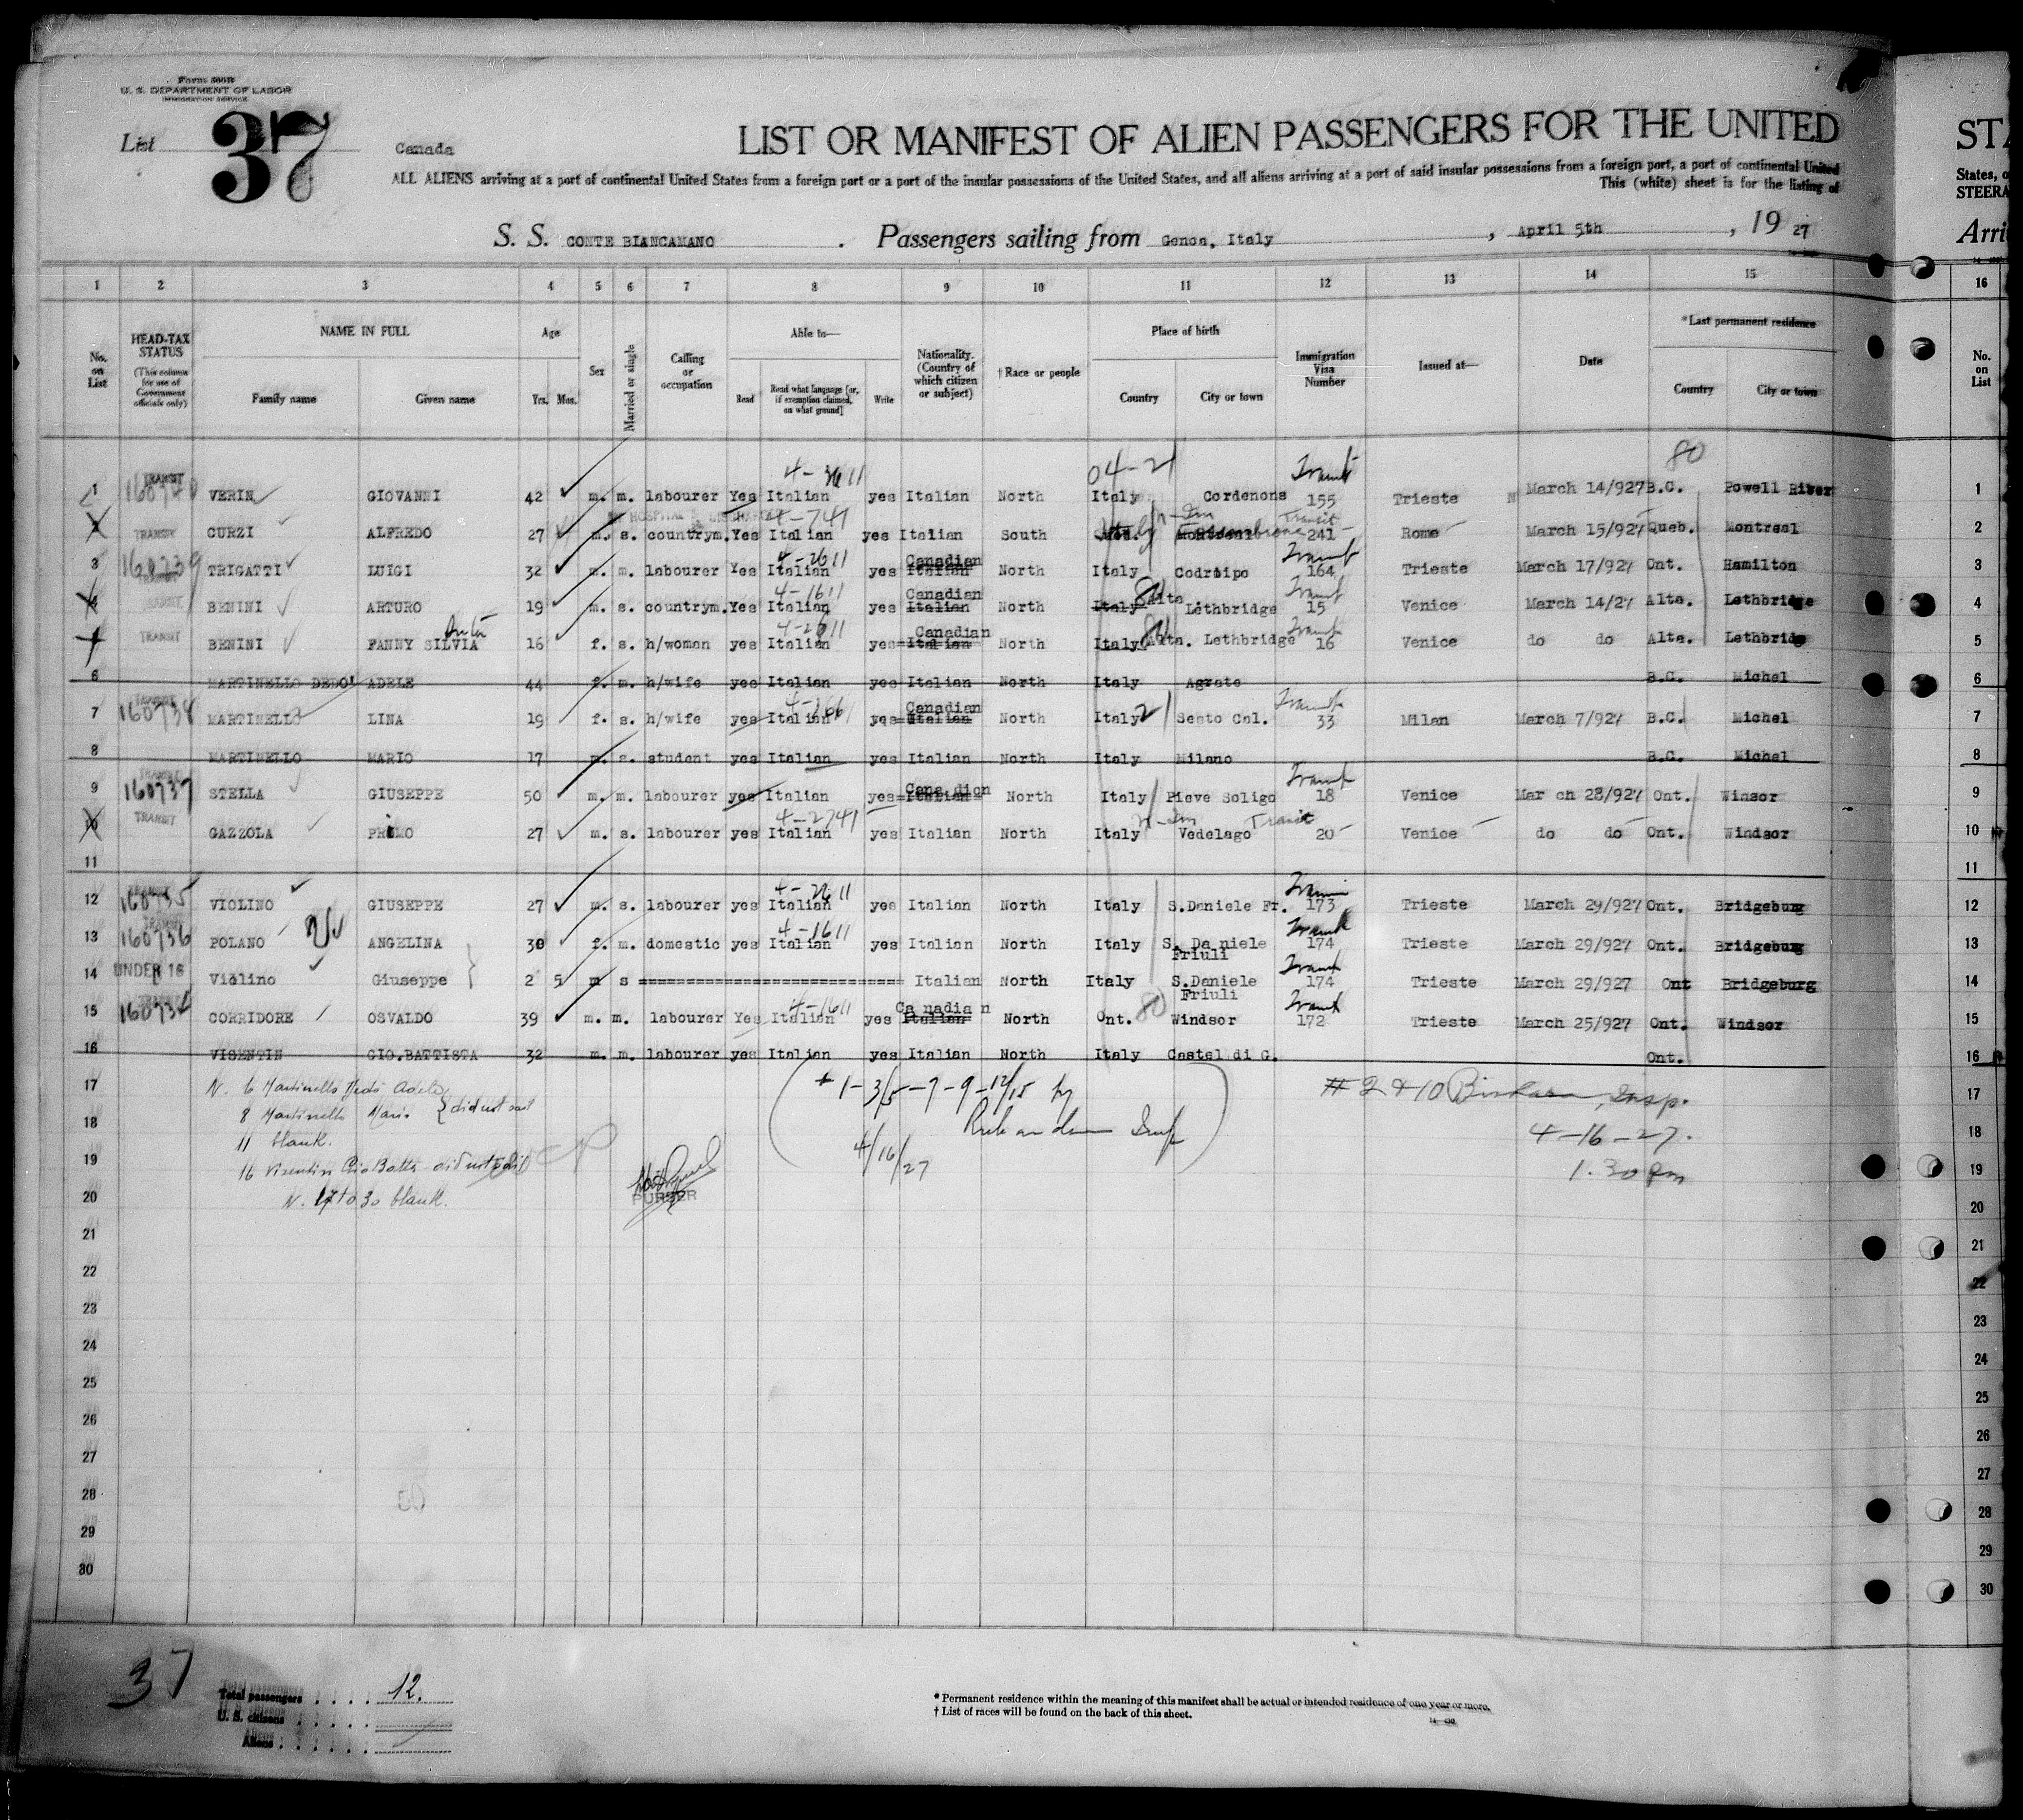 Form 500B
U. S. DEPARTMENT OF LABOR
IMMIGRATION SERVICE
List 37
Canada
LIST OR MANIFEST OF ALIEN PASSENGERS FOR THE UNITED
STA
ALL ALIENS arriving at a port of continental United States from a foreign port or a port of the insular possessions of the United States, and all aliens arriving at a port of said insular possessions from a foreign port, a port of continental United
States, o
This (white) sheet is for the listing of
STEERA
S. S. CONTE BIANCAMANO . Passengers sailing from Genoa, Italy , April 5th , 19 27
Arri
1 2 3 4 5 6 7 8 9 10 11 12 13 14 15 16
No. on List
HEAD-TAX STATUS
(This column for use of Government officials only)
NAME IN FULL
Family name Given name
Age
Yrs. Mos.
Sex
Married or single
Calling or occupation
Able to—
Read Read what language [or, if exemption claimed, on what ground] Write
Nationality. (Country of which citizen or subject)
†Race or people
Place of birth
Country City or town
Immigration Visa Number
Issued at—
Date
*Last permanent residence
Country City or town
No. on List
80
04-2
1 TRANSIT 160740 VERIN GIOVANNI 42 m. m. labourer Yes Italian yes Italian North Italy Cordenons Transit 155 Trieste March 14/927 B.C. Powell River 1
2 TRANSIT CURZI ALFREDO 27 m. s. countrym. Yes Italian yes Italian South Italy Fossombrone Transit 241 Rome March 15/927 Queb. Montreal 2
3 160739 TRIGATTI LUIGI 32 m. m. labourer Yes 4-2611 Italian yes Canadian Italian North Italy Codroipo Transit 164 Trieste March 17/927 Ont. Hamilton 3
4 TRANSIT BENINI ARTURO 19 m. s. countrym. Yes 4-1611 Italian yes Canadian Italian North Italy Alta Lethbridge Transit 15 Venice March 14/27 Alta. Lethbridge 4
5 TRANSIT BENINI FANNY SILVIA 16 f. s. h/woman yes Italian yes Canadian Italian North Italy Alta. Lethbridge Transit 16 Venice do do Alta. Lethbridg 5
6 MARTINELLO DEDO' ADELE 44 f. m. h/wife yes Italian yes Italian North Italy Agrate B.C. Michel 6
7 TRANSIT 160738 MARTINELLO LINA 19 f. s. h/wife yes Italian yes Canadian Italian North Italy Sesto Cal. Transit 33 Milan March 7/927 B.C. Michel 7
8 MARTINELLO MARIO 17 m. s. student yes Italian yes Italian North Italy Milano B.C. Michel 8
9 TRANSIT 160737 STELLA GIUSEPPE 50 m. m. labourer yes Italian yes Canadian Italian North Italy Pieve Soligo Transit 18 Venice March 28/927 Ont. Winsor 9
10 TRANSIT GAZZOLA PRIMO 27 m. s. labourer yes 4-2741 Italian yes Italian North Italy Vedelago Transit 20 Venice do do Ont. Windsor 10
11 11
12 TRANSIT 160735 VIOLINO GIUSEPPE 27 m. s. labourer yes Italian yes Italian North Italy S.Daniele Fr. 173 Trieste March 29/927 Ont. Bridgeburg 12
13 160736 POLANO ANGELINA 30 f. m. domestic yes 4-1611 Italian yes Italian North Italy S. Da niele Friuli Transit 174 Trieste March 29/927 Ont. Bridgeburg 13
14 UNDER 16 Violino Giuseppe 2 5 m s Italian North Italy S.Daniele Friuli Transit 174 Trieste March 29/927 Ont Bridgeburg 14
15 160734 CORRIDORE OSVALDO 39 m. m. labourer Yes 4-1611 Italian yes Ca nadia n Italian North Ont. 80 Windsor Transit 172 Trieste March 25/927 Ont. Windsor 15
16 VISENTIN GIO.BATTISTA 32 m. m. labourer yes Italian yes Italian North Italy Castel di G. Ont. 16
17 N. 6 Martinello Dedò Adele + 1-3/5-7-9-12/15 by # 2 & 10 Insp. 17
18 8 Martinello Mario } did not sail Insp 4-16-27. 18
11 blank.
19 16 Visentin Gio Batta did not sail 4/16/27 1.30 pm 19
20 N. 17 to 30 blank. PURSER 20
21 21
22 22
23 23
24 24
25 25
26 26
27 27
28 28
29 29
30 30
37
Total passengers . . . . 12.
U. S. citizens . . . . .
Aliens . . . . . .
* Permanent residence within the meaning of this manifest shall be actual or intended residence of one year or more.
† List of races will be found on the back of this sheet.